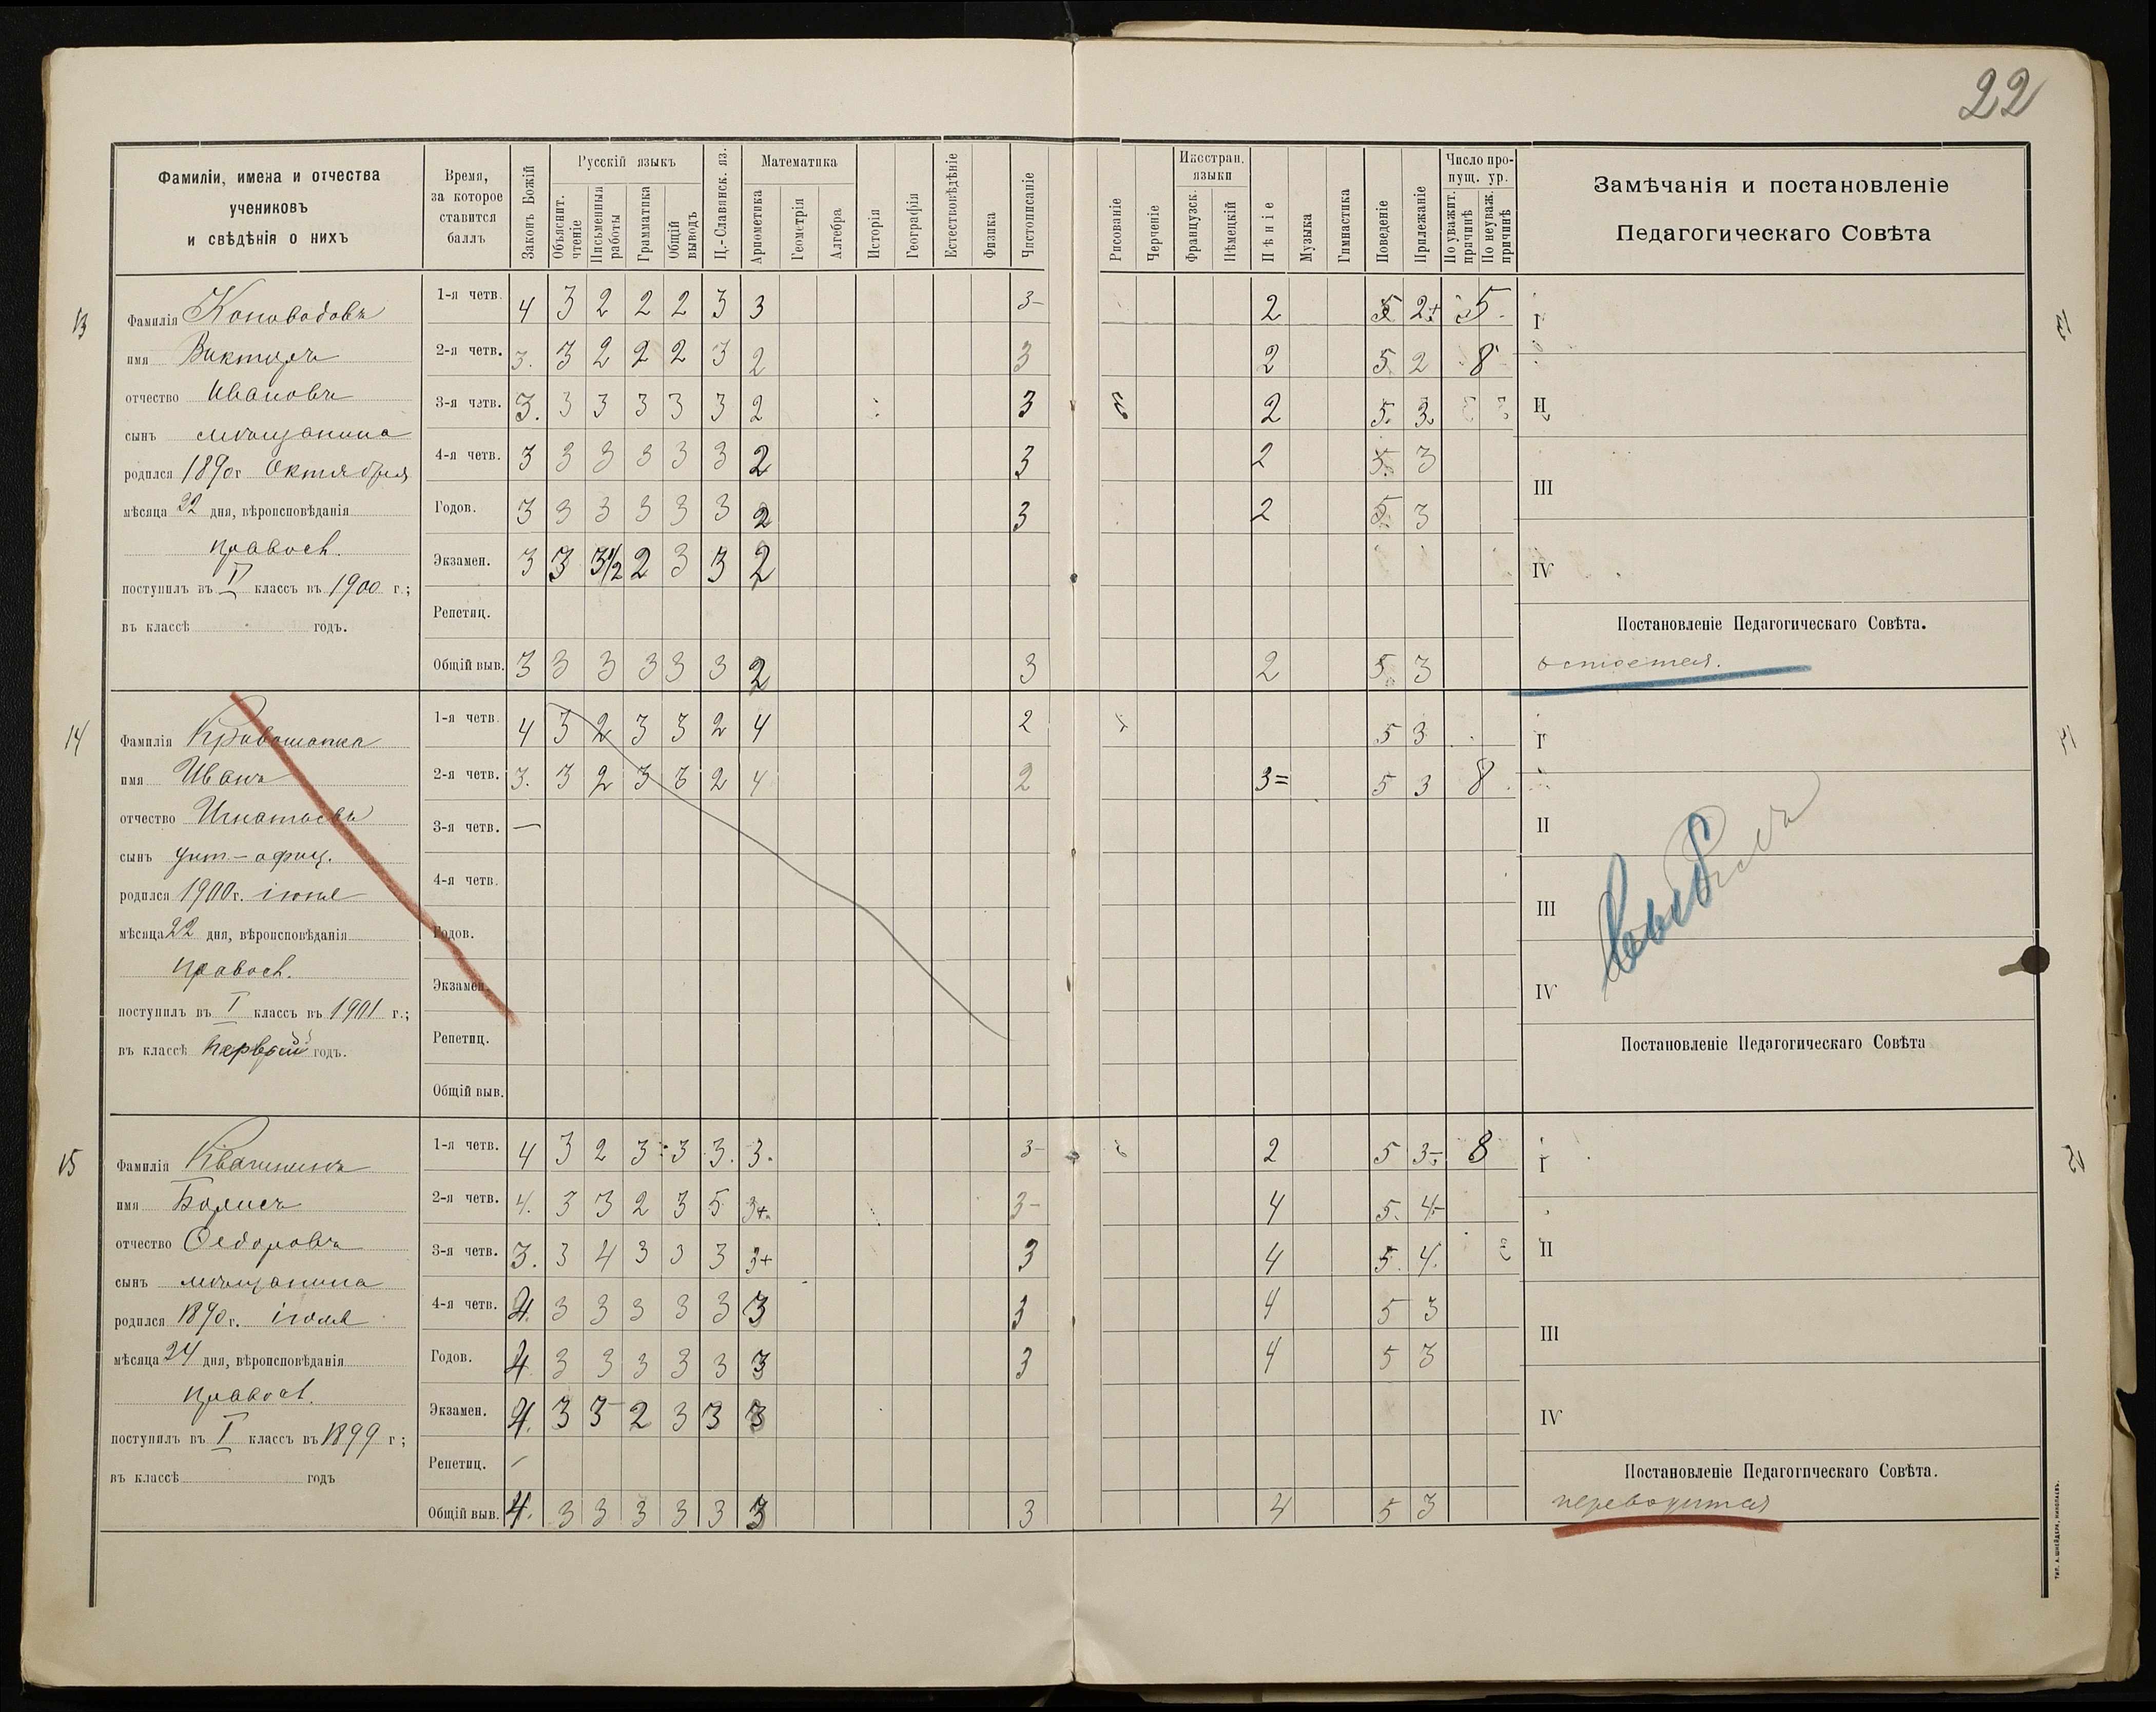 22
Фамиліи, имена и отчества
учениковъ
и свѣдѣнія о нихъ
Время,
за которое
ставится
баллъ
Законъ Божій
Русскій языкъ
Объяснит. чтеніе
Письменныя работы
Грамматика
Общій выводъ
Ц.-Славянск. яз.
Математика
Ариѳметика
Геометрія
Алгебра
Исторія
Географія
Естествовѣдѣніе
Физика
Чистописаніе
Рисованіе
Черченіе
Иностран. языки
Французск.
Нѣмецкій
Пѣніе
Музыка
Гимнастика
Поведеніе
Прилежаніе
Число про-
пущ. ур.
По уважит. причинѣ
По неуваж. причинѣ
Замѣчанія и постановленіе
Педагогическаго Совѣта
13
Фамилія Коноводовъ
имя Викторъ
отчество Ивановъ
сынъ мѣщанина
родился 1890 г. Октября
мѣсяца 22 дня, вѣроисповѣданія
правосл.
поступилъ въ I классъ въ 1900 г.;
въ классѣ годъ.
1-я четв. 4 3 2 2 2 3 3 3- 2 5 2+ 5.
2-я четв. 3. 3 2 2 2 3 2 3 2 5 2 8
3-я четв. 3. 3 3 3 3 3 2 3 2 5. 3.
4-я четв. 3 3 3 3 3 3 2 3 2 5. 3
Годов. 3 3 3 3 3 3 2 3 2 5. 3
Экзамен. 3 3 3½ 2 3 3 2
Репетиц.
Общій выв. 3 3 3 3 3 3 2 3 2 5 3
I
II
III
IV
Постановленіе Педагогическаго Совѣта.
остается.
14
Фамилія Кривошапка
имя Иванъ
отчество Игнатьевъ
сынъ унт-офиц.
родился 1900 г. іюня
мѣсяца 22 дня, вѣроисповѣданія
правосл.
поступилъ въ I классъ въ 1901 г.;
въ классѣ первый годъ.
1-я четв. 4 3 2 3 3 2 4 2 5 3
2-я четв. 3. 3 2 3 3 2 4 2 3= 5 3 8
3-я четв. —
4-я четв.
Годов.
Экзамен.
Репетиц.
Общій выв.
I
II
III
IV
выбылъ
Постановленіе Педагогическаго Совѣта
15
Фамилія Квашнинъ
имя Борисъ
отчество Ѳедоровъ
сынъ мѣщанина
родился 1890 г. іюля
мѣсяца 24 дня, вѣроисповѣданія
правосл.
поступилъ въ I классъ въ 1899 г;
въ классѣ годъ
1-я четв. 4 3 2 3 3 3. 3. 3- 2 5 3- 8
2-я четв. 4. 3 3 2 3 5 3+. 3- 4 5. 4-
3-я четв. 3. 3 4 3 3 3 3+ 3 4 5. 4.
4-я четв. 4. 3 3 3 3 3 3 3 4 5 3
Годов. 4 3 3 3 3 3 3 3 4 5 3
Экзамен. 4. 3 3 2 3 3 3
Репетиц. —
Общій выв. 4. 3 3 3 3 3 3 3 4 5 3
I
II
III
IV
Постановленіе Педагогическаго Совѣта.
переводится
ТИП. А. ШНЕЙДЕРА, НИКОЛАЕВЪ.